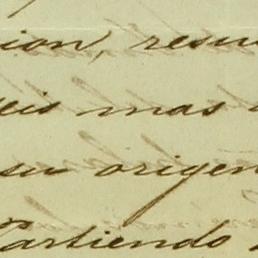 ion, resu
eis mas
su origen
Partiendo